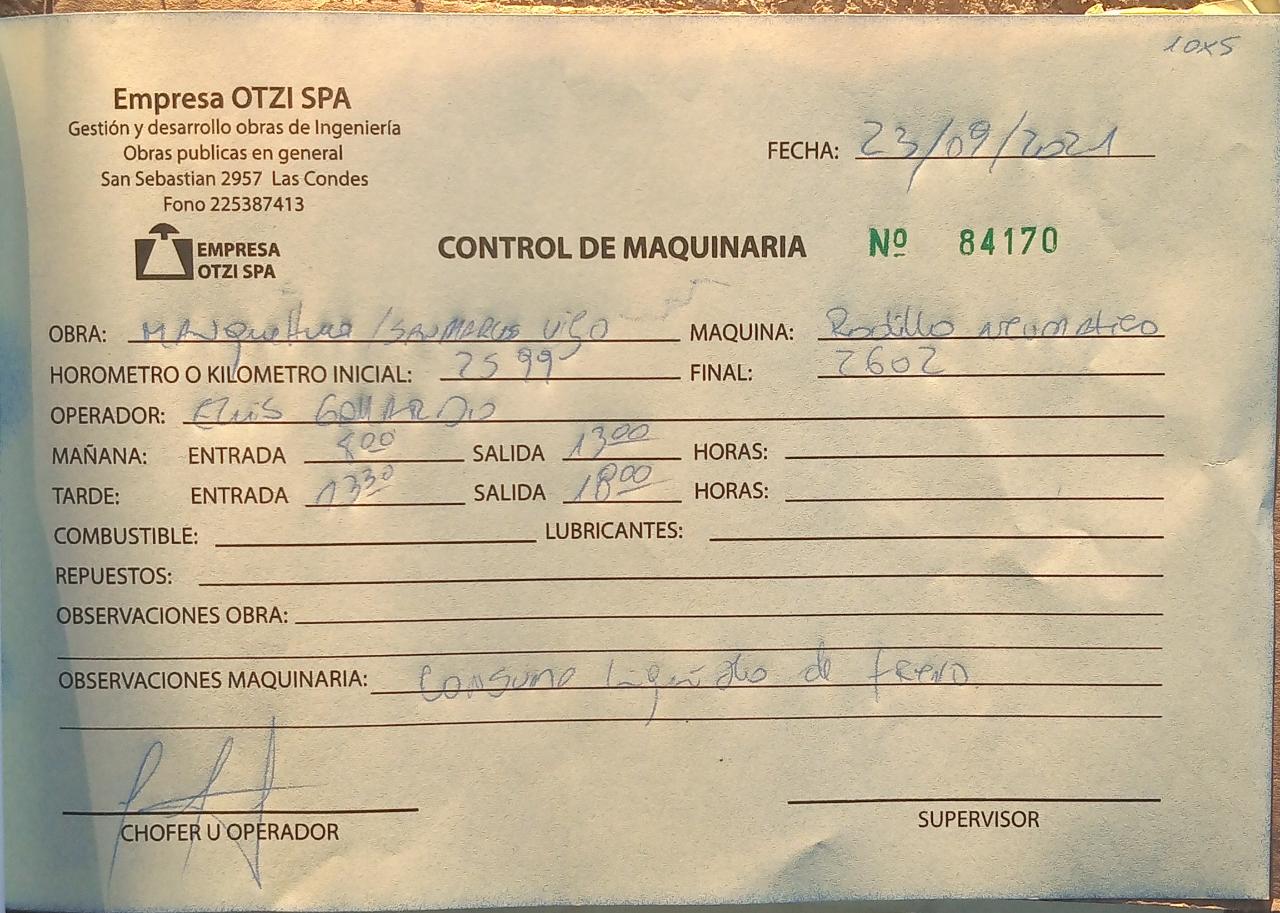 10x5
Empresa OTZI SPA
Gestión y desarrollo obras de Ingeniería
Obras publicas en general
San Sebastian 2957 Las Condes
Fono 225387413
EMPRESA
OTZI SPA
FECHA: 23/09/2021
CONTROL DE MAQUINARIA Nº 84170
OBRA: / SAN MARCOS MAQUINA: Rodillo neumatico
HOROMETRO O KILOMETRO INICIAL: 2599 FINAL: 2602
OPERADOR:
MAÑANA: ENTRADA 800 SALIDA 1300 HORAS:
TARDE: ENTRADA 1330 SALIDA 1800 HORAS:
COMBUSTIBLE: LUBRICANTES:
REPUESTOS:
OBSERVACIONES OBRA:
OBSERVACIONES MAQUINARIA: Consumo liquido de freno
CHOFER U OPERADOR
SUPERVISOR